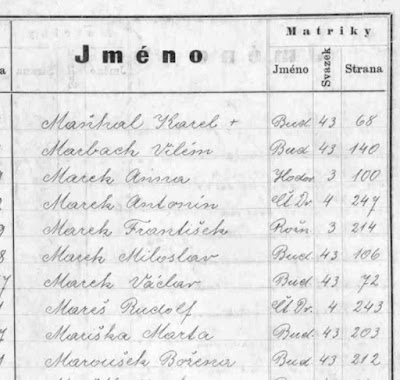 Matriky
Jméno
Jméno Svazek Strana
Maršhal Karel + Bud 43 68
Macbach Vilém Bud 43 140
Marek Anna Hodor 3 100
Marek Antonín Čt Dr. 4 247
Marek František 3 214
Marek Miloslav Bud 43 106
Marek Václav Bud 43 72
Mareš Rudolf Čt Dr. 4 243
Maruška Marta Bud. 43 203
Maroušek Božena Bud 43 212